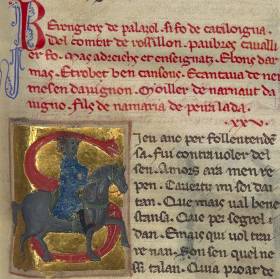 Berengiers de palazol si fo de cataloingna
Del comtat de rossillon. paubres cavallier
er fo. Mas adreichs et enseignatz. E bons dar
mas. E trobet ben cansons. E cantava de ner
mesen da vignon. Moiller de narnaut da
vigno. fils de na maria de peira lada.
.xxv.
Ieu anc per follentenden
sa. fui contra voler del
sen. Amors ara men re
pen.
Que mais val bene
stansa. Que per segrel a
dan. E mais qui vol trau
re nan. Son sen quel ne
ssi talan.